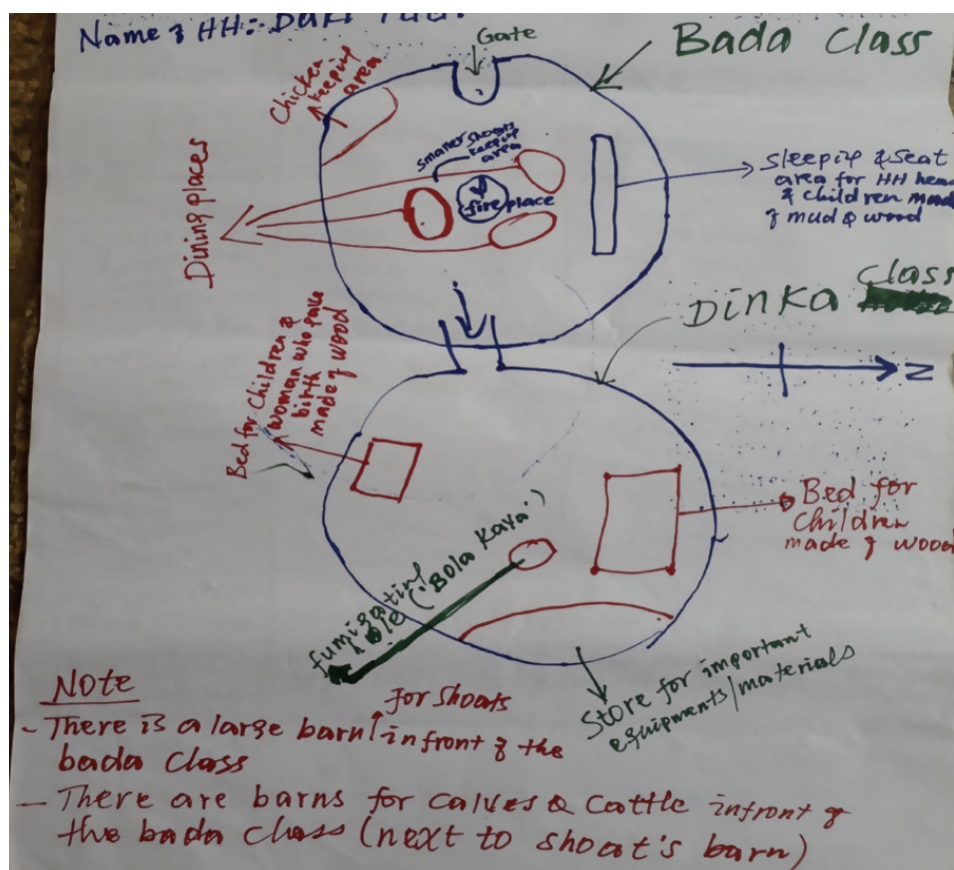 Name of HH:-
Gate
Bada Class
Chicken
keeping
area
smaller shoats
keeping
area
fire place
Dining places
Sleeping & Seat
area for HH head
& children made
of mud & wood
Dinka Class
N
Bed for Children &
woman who gave
birth
made of wood
Bed for
Children
made of wood
fumigating
hole ("Bola Kaya")
Store for important
equipments/materials
Note
- There is a large barn for shoats infront of the
bada class
- There are barns for calves & cattle infront of
the bada class (next to shoat's barn)